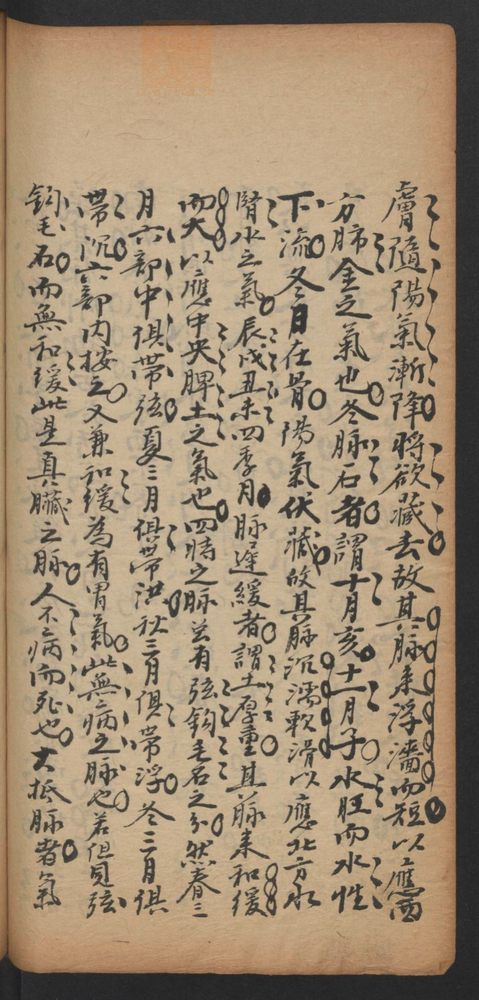 膚隨陽氣漸降將欲藏去故其脉来浮濇而短以應西
方肺金之氣也冬脉石者謂十月亥十一月子水旺而水性
下流冬月在骨陽氣伏藏故其脉沉濡軟滑以應北方水
腎水之氣辰戌丑未四季月脉遲緩者謂土厚重其脉来和緩
而大以應中央脾土之氣也四時之脉並有弦鈎毛石之分然春三
月六部中俱帶弦夏三月俱帶洪秋三月俱帶浮冬三月俱
帶沉六部内按之又兼和緩為有胃氣此無病之脉也若但見弦
鈎毛石而無和緩此是真臟之脉人不病而死也大抵脉者氣